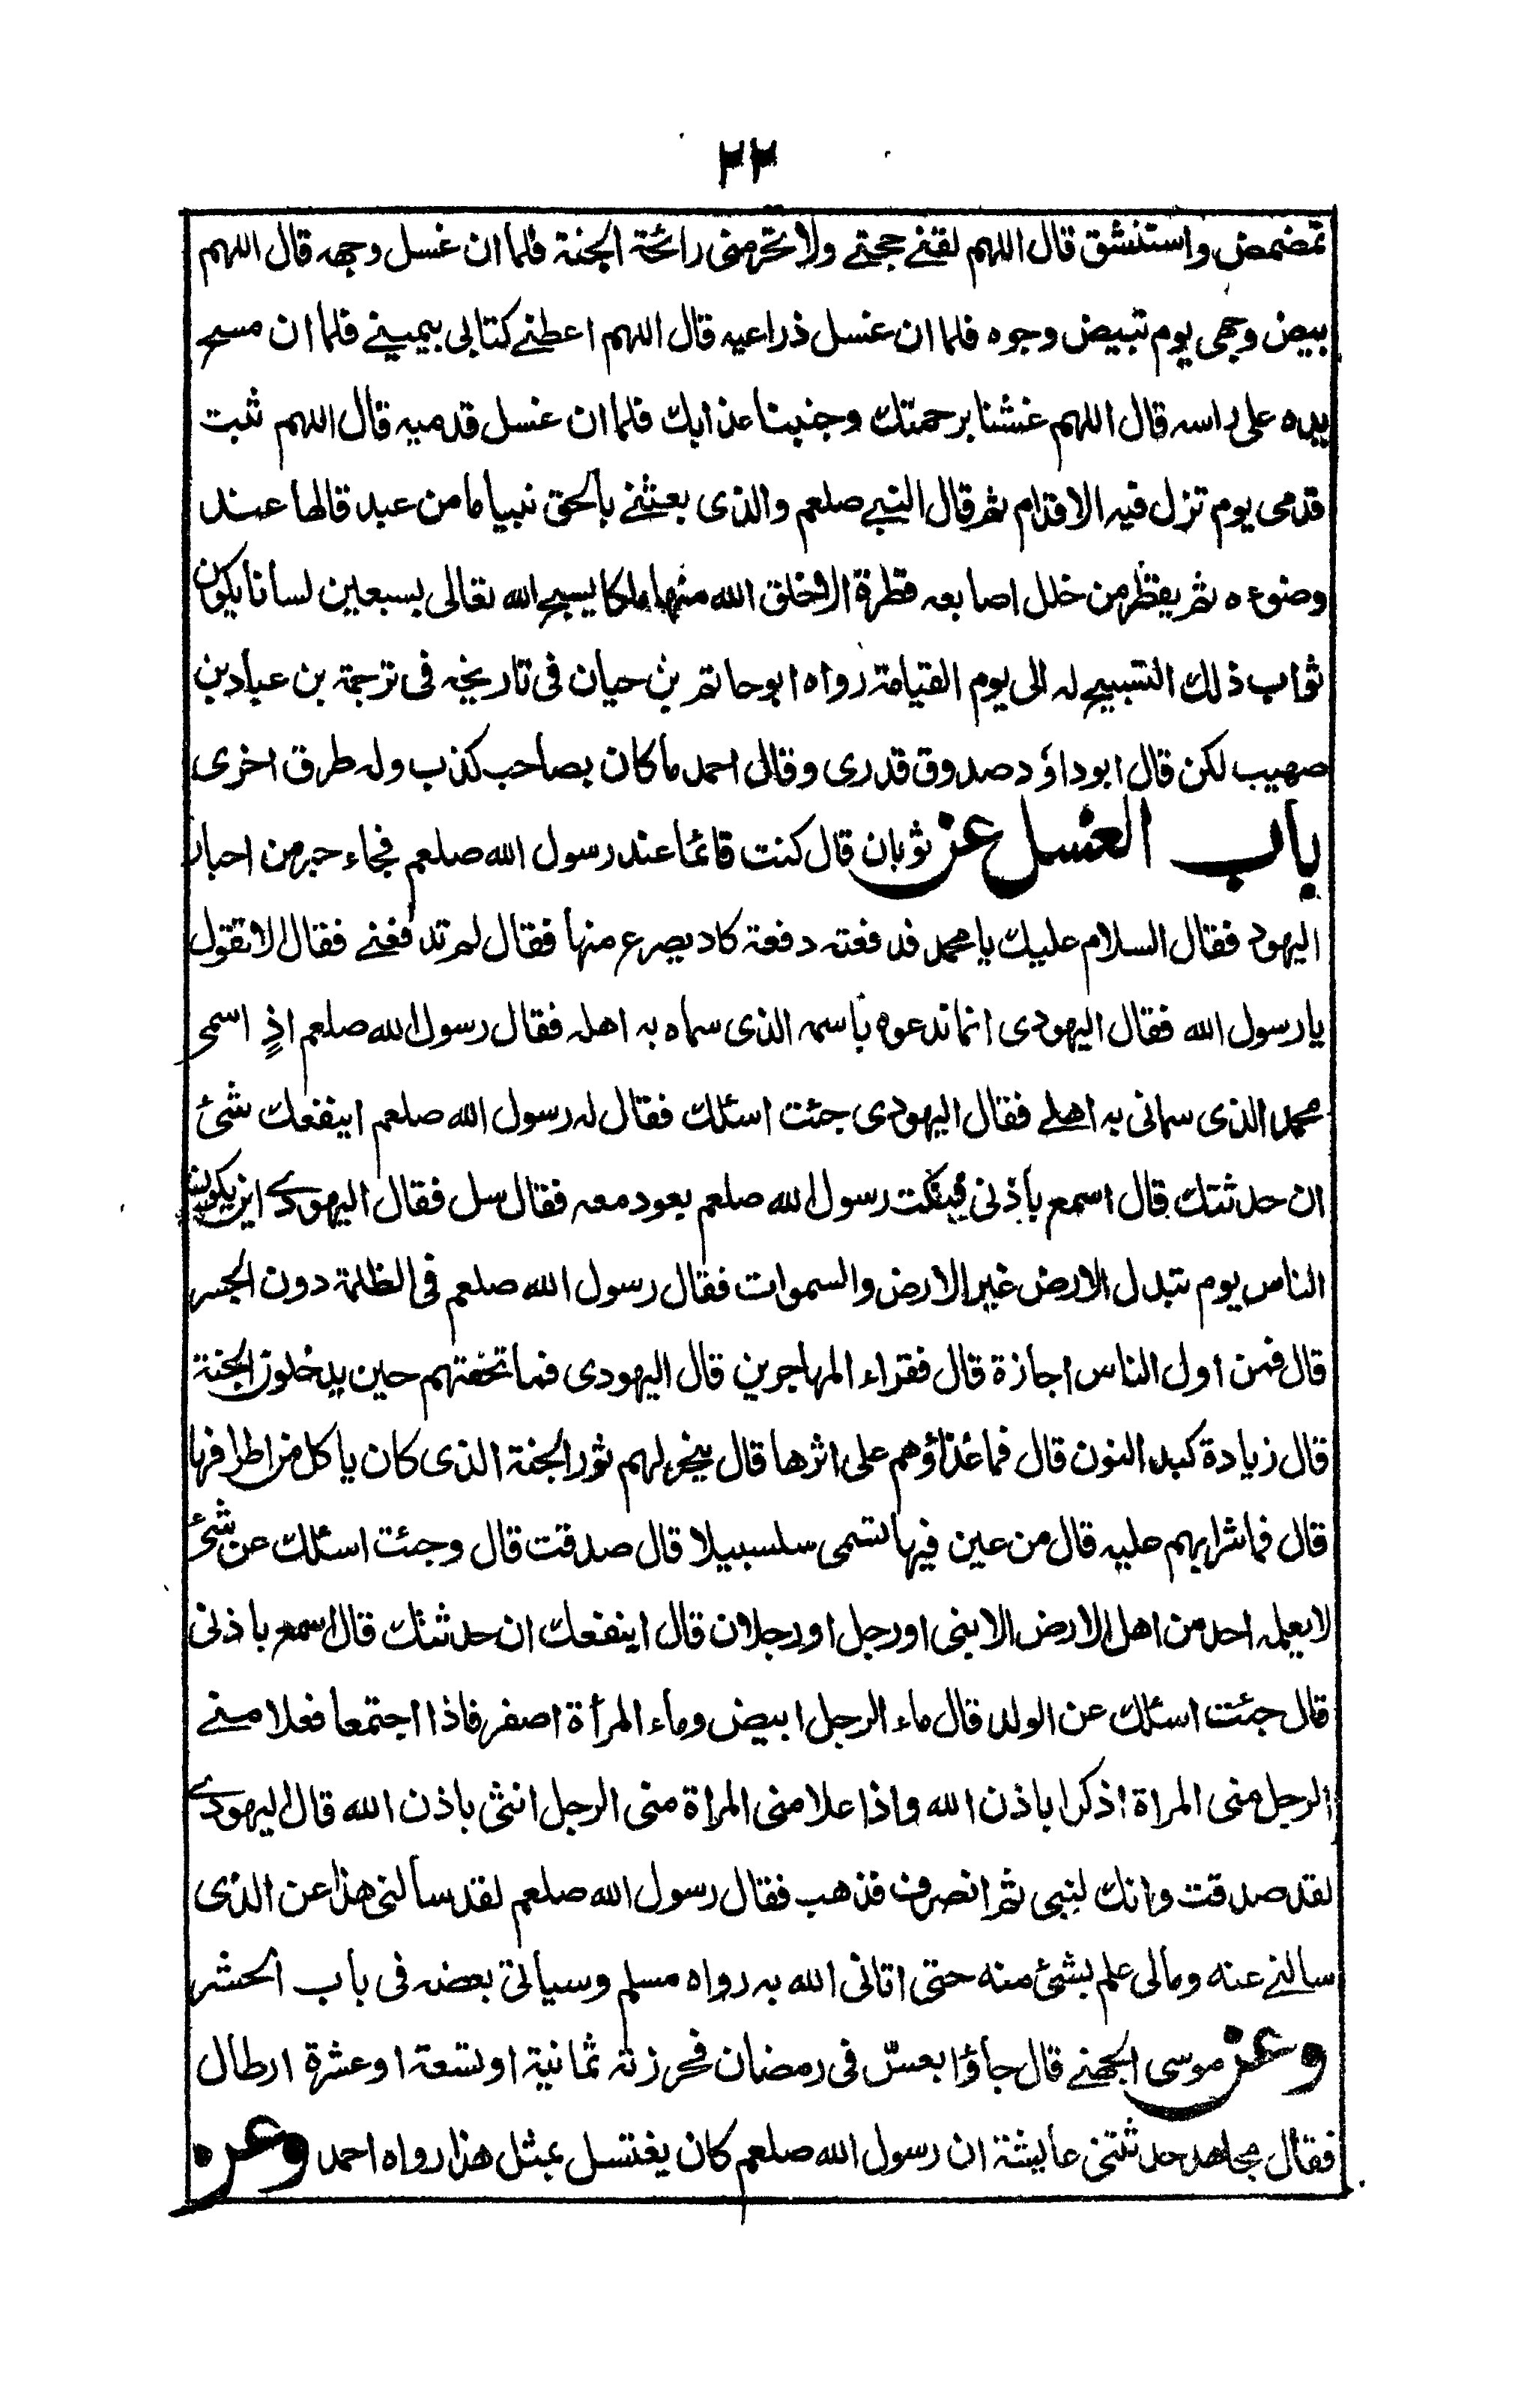 ٢٢
تمضمض واستنشق قال اللهم لقنے حجتے ولا تحرمنی رائحة الجنة فلما ان غسل وجهه قال اللهم
بيض وجهی يوم تبيض وجوه فلما ان غسل ذراعيه قال اللهم اعطنے كتابی بيمينے فلما ان مسح
يده علی راسه قال اللهم غشنا برحمتك وجنبنا عذابك فلما ان غسل قدميه قال اللهم ثبت
قدمی يوم تزل فيه الاقدام ثم قال النبے صلعم والذی بعثنے بالحق نبيا ما من عبد قالها عند
وضوءه ثم يقطر من خلل اصابعه قطرة الا خلق الله منها ملكا يسبح الله تعالی بسبعين لسانا يكون
ثواب ذلك التسبيح له الی يوم القيامة رواه ابو حاتم بن حيان فی تاريخه فی ترجمة بن عبادين
صهيب لكن قال ابو داؤد صدوق قدری وقال احمد ما كان بصاحب كذب وله طرق اخری
باب الغسل عن ثوبان قال كنت قائما عند رسول الله صلعم فجاء حبر من احبار
اليهود فقال السلام عليك يا محمد فدفعته دفعة كاد يصرع منها فقال لم تدفعنے فقال الا تقول
يا رسول الله فقال اليهودی انما ندعوه باسمه الذی سماه به اهله فقال رسول الله صلعم اذٍ اسمی
محمد الذی سمانی به اهلے فقال اليهودی جئت اسئلك فقال له رسول الله صلعم اينفعك شئ
ان حدثتك قال اسمع باذنی فنكت رسول الله صلعم بعود معه فقال سل فقال اليهودے اين يكون
الناس يوم تبدل الارض غير الارض والسموات فقال رسول الله صلعم فی الظلمة دون الجسر
قال فمن اول الناس اجازة قال فقراء المهاجرين قال اليهودی فما تحفتهم حين يدخلون الجنة
قال زيادة كبد النون قال فما غذاؤهم علی اثرها قال ينحر لهم ثور الجنة الذی كان ياكل من اطرافها
قال فما شرابهم عليه قال من عين فيها تسمی سلسبيلا قال صدقت قال وجئت اسئلك عن شئ
لا يعلمه احد من اهل الارض الا نبی او رجل او رجلان قال اينفعك ان حدثتك قال اسمع باذنی
قال جئت اسئلك عن الولد قال ماء الرجل ابيض وماء المرأة اصفر فاذا اجتمعا فعلا منے
الرجل منی المراة اذكرا باذن الله واذا علا منی المراة منی الرجل انثی باذن الله قال اليهودے
لقد صدقت وانك لنبی ثم انصرف فذهب فقال رسول الله صلعم لقد سألنی هذا عن الذی
سالنے عنه ومالی علم بشئ منه حتی اتانی الله به رواه مسلم وسياتی بعضه فی باب الحشر
وعن موسی الجهنے قال جاؤا بعسّ فی رمضان فحرزته ثمانية او تسعة او عشرة ارطال
فقال مجاهد حدثتنی عايشة ان رسول الله صلعم كان يغتسل بمثل هذا رواه احمد وعن